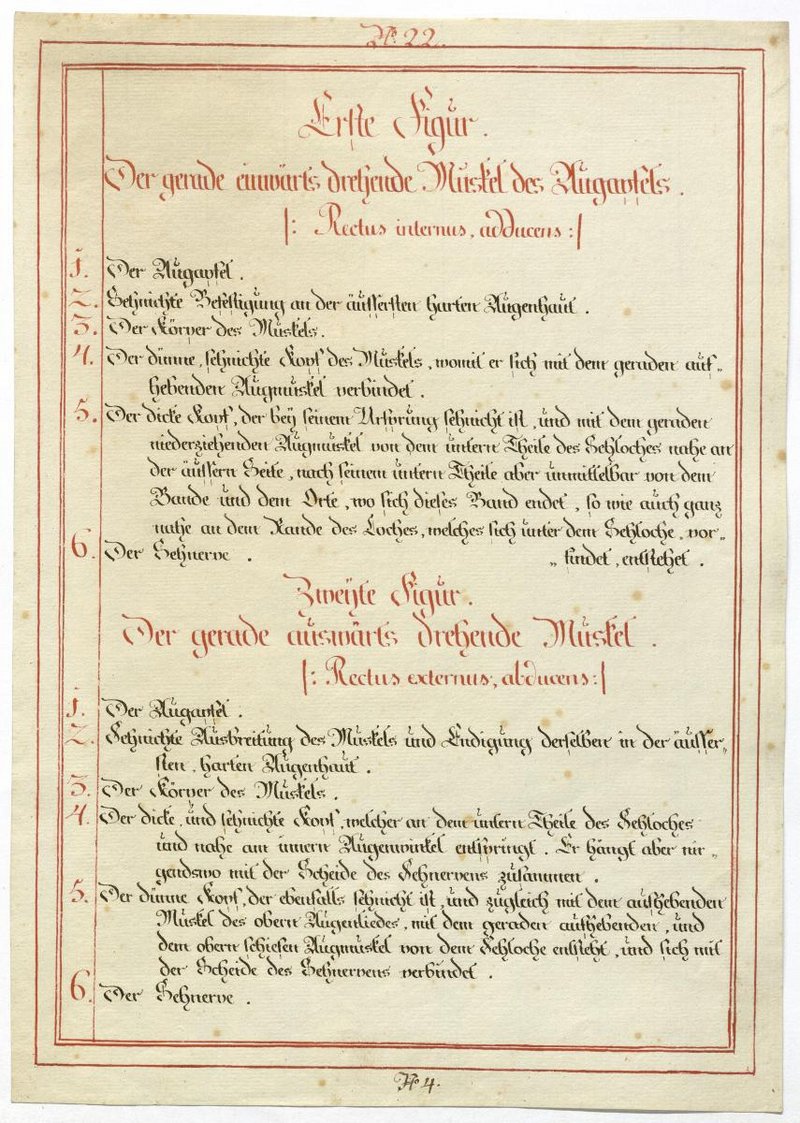 No. 22.
Erste Figur.
Der gerade einwärts drehende Muskel des Augapfels.
/: Rectus internus, adducens :/
1. Der Augapfel.
2. Sehnichte Befestigung an der äussersten harten Augenhaut.
3. Der Körper des Muskels.
4. Der dünne, sehnichte Kopf des Muskels, womit er sich mit dem geraden auf„
hebenden Augmuskel verbindet.
5. Der dicke Kopf, der bey seinem Ursprung sehnicht ist, und mit dem geraden
niederziehenden Augmuskel von dem untern Theile des Sehloches nahe an
der äussern Seite, nach seinem untern Theile aber unmittelbar von dem
Bande und dem Orte, wo sich dieses Band endet, so wie auch ganz
nahe an dem Rande des Loches, welches sich unter dem Sehloche, vor„
6. Der Sehnerve. „findet, entstehet.
Zweyte Figur.
Der gerade auswärts drehende Muskel.
/: Rectus externus, abducens :/
1. Der Augapfel.
2. Sehnichte Ausbreitung des Muskels und Endigung derselben in der äusser„
sten, harten Augenhaut.
3. Der Körper des Muskels.
4. Der dicke, und sehnichte Kopf, welcher an dem untern Theile des Sehloches
und nahe am innern Augenwinkel entspringt. Er hängt aber nir„
gendswo mit der Scheide des Sehnervens zusammen.
5. Der dünne Kopf, der ebenfalls sehnicht ist, und zugleich mit dem aufhebenden
Muskel des obern Augenliedes, mit dem geraden aufhebenden, und
dem obern schiefen Augmuskel von dem Sehloche entsteht, und sich mit
der Scheide des Sehnervens verbindet.
6. Der Sehnerve.
No 4.